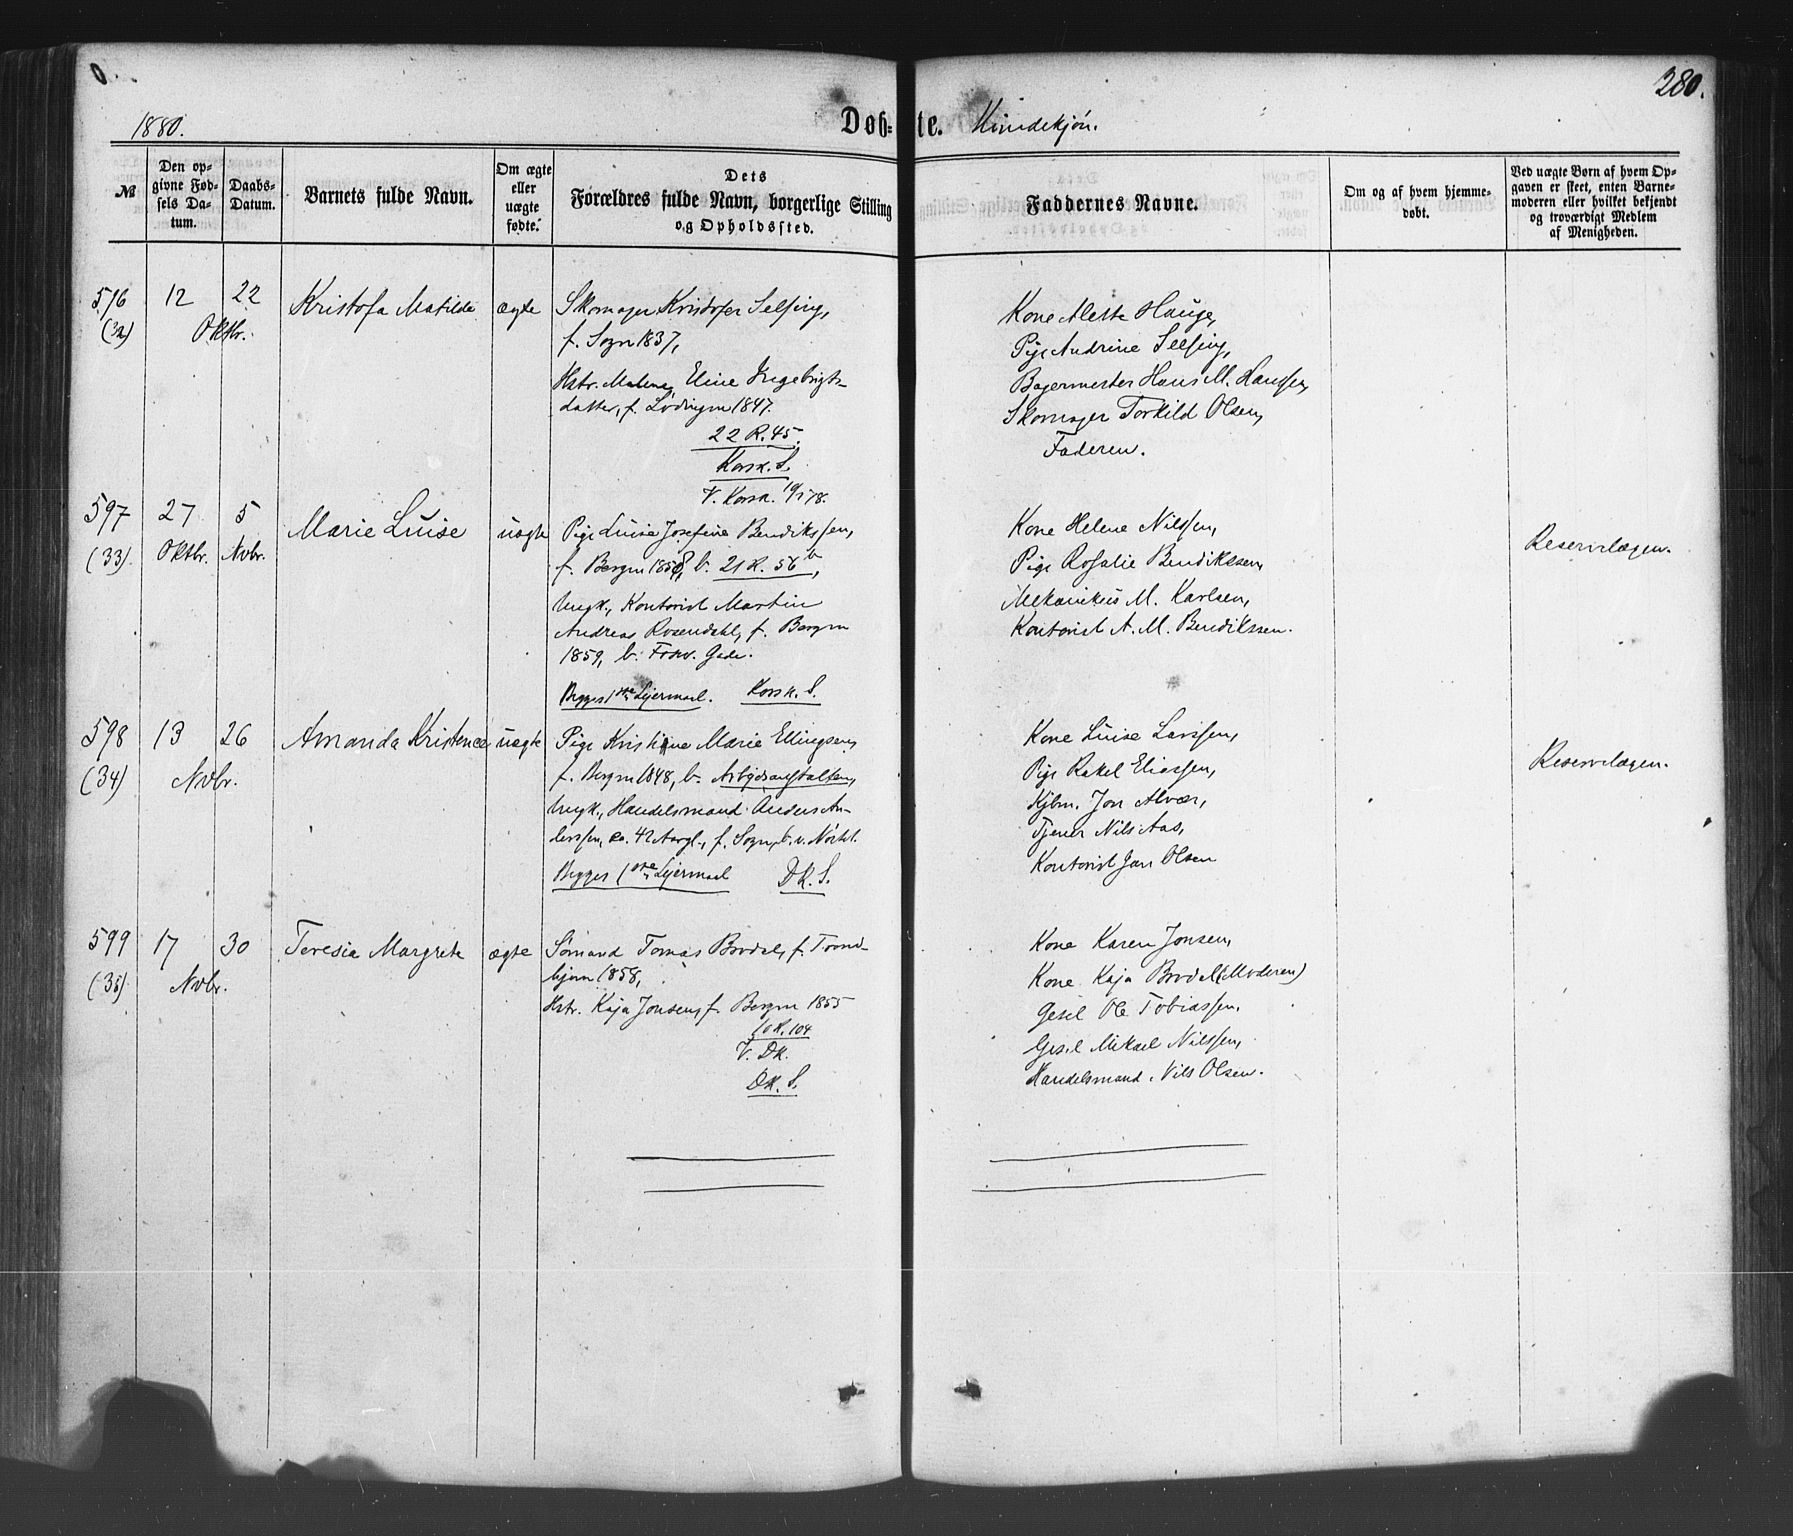 280.
1880.
Døb-te. Kvindekjøn.
№
Den opgivne Fødsels Datum.
Daabs-Datum.
Barnets fulde Navn.
Om ægte eller uægte fødte.
Dets Forældres fulde Navn, borgerlige Stilling og Opholdssted.
Faddernes Navne.
Om og af hvem hjemmedøbt.
Ved uægte Børn af hvem Opgaven er skeet, enten Barnemoderen eller hvilket bekjendt og troværdigt Medlem af Menigheden.
596 12 22 Kristofa Matilde ægte Skomager Kristofer Selseng,
(32) Oktbr. f. Sogn 1837,
Hstr. Malena Eline Ingebrigts-
datter, f. Lødingen 1847.
22 R. 45.
Korsk. S.
V. Korsk.
Kone Alette Hauge,
Pige Andrine Selseng,
Bagermester Hans M. Hanssen,
Skomager Torkild Olsen,
Faderen.
597 27 5 Marie Luise uægte Pige Luise Josefine Bendikssen,
(33) Oktbr. Nvbr. f. Bergen b. 21 R. 56 b,
Ungk., Kontorist Martin
Andreas Rosendahl, f. Bergen
1859, b. Gade.
Begges 1ste Lejermaal. Korsk. S.
Kone Helene Nilssen,
Pige Rosalie Bendikssen,
Mekanikus M. Karlsen,
Kontorist A. M. Bendikssen.
Reservelægen.
598 13 26 Amanda Kristence uægte Pige Kristine Marie Ellingsen,
(34) Nvbr. f. Bergen 1848, b. Arbejdsanstalten,
Ungk., Handelsmand Anders An-
derssen, ca. 42 Aar gl., f. Sogn, b. v. Nøstet.
Begges 1ste Lejermaal DK. S.
Kone Luise Larssen,
Pige Rakel Eliassen,
Kjbm. Jon Alvær,
Tjener Nils Aas,
Kontorist Jan Olsen
Reservelægen.
599 17 30 Teresia Margrete ægte Sømand Tomas Brodal, f. Trond-
(35) Nvbr. hjem 1858,
Hstr. Kaja Jonsen, f. Bergen 1855
10 R. 104
V. DK.
DK. S.
Kone Karen Jonsen,
Kone Kaja Brodal (Moderen)
Gesel Ole Tobiassen,
Gesel Mikael Nilssen,
Handelsmand Nils Olsen.